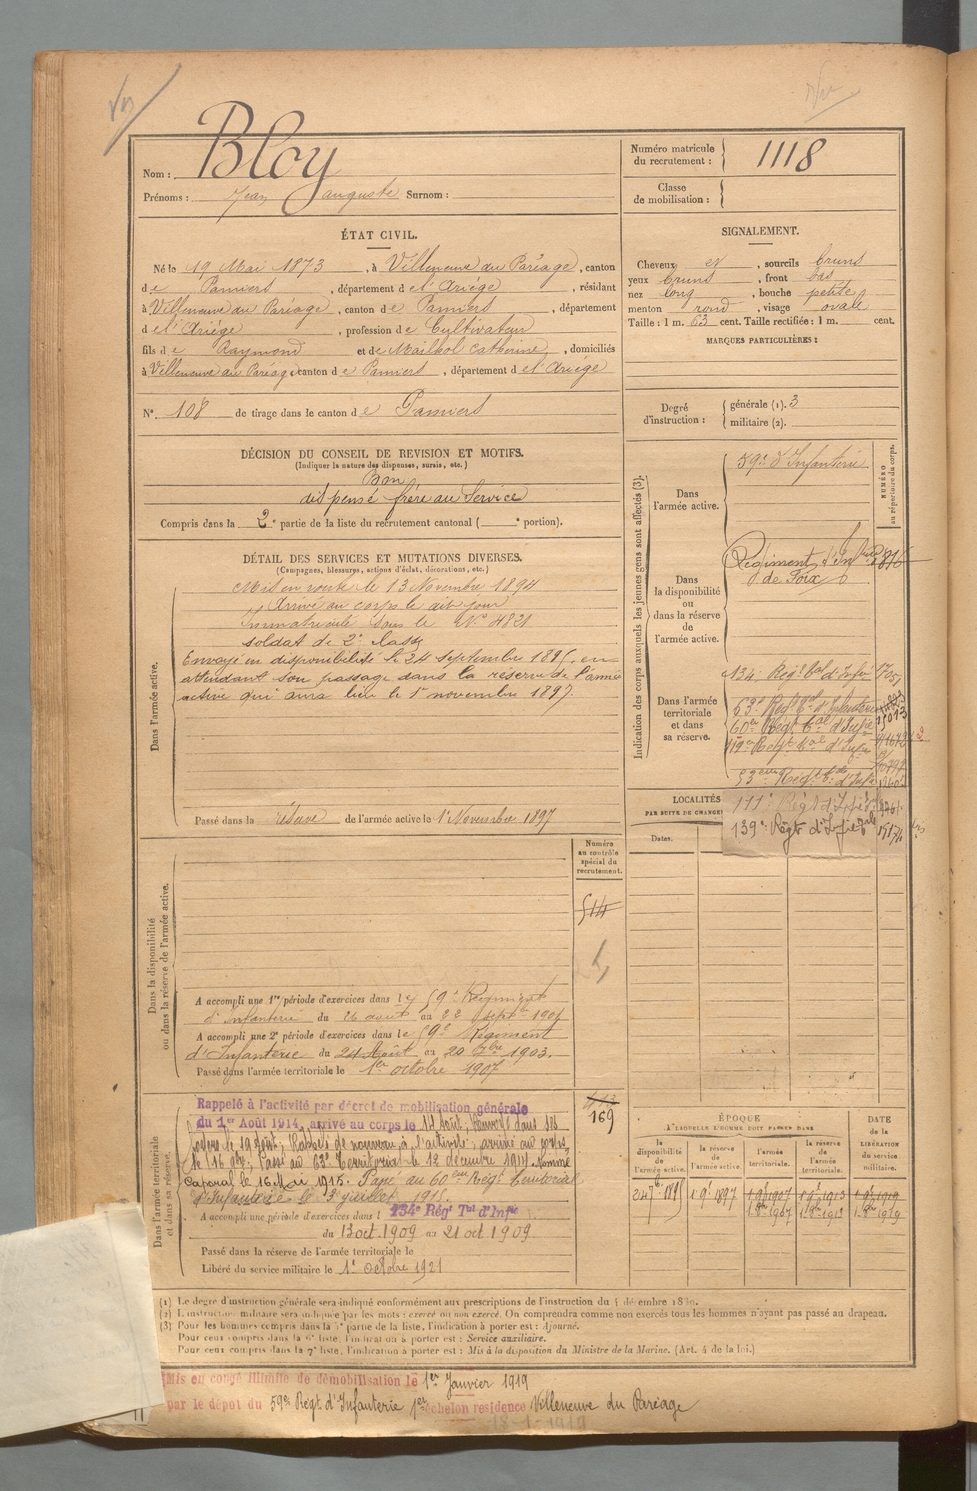 Nom : Bloy
Prénoms : Jean auguste Surnom :
Numéro matricule du recrutement : 1118
Classe de mobilisation :
ÉTAT CIVIL.
Né le 19 Mai 1873, à Villeneuve du Paréage, canton
de Pamiers, département de l'Ariége, résidant
à Villeneuve du Paréage, canton de Pamiers, département
de l'Ariége, profession de Cultivateur
fils de Raymond et de Mailhol Catherine, domiciliés
à Villeneuve du Paréage canton de Pamiers, département de l'Ariége
N°. 108 de tirage dans le canton de Pamiers
SIGNALEMENT.
Cheveux et, sourcils bruns
yeux bruns, front bas
nez long, bouche petite
menton rond, visage ovale
Taille : 1 m. 63 cent. Taille rectifiée : 1 m. cent.
MARQUES PARTICULIÈRES :
Degré d'instruction : générale (1). 3
militaire (2).
DÉCISION DU CONSEIL DE REVISION ET MOTIFS.
(Indiquer la nature des dispenses, sursis, etc.)
Bon
dispensé frère au Service
Compris dans la 2e partie de la liste du recrutement cantonal ( e portion).
DÉTAIL DES SERVICES ET MUTATIONS DIVERSES.
(Campagnes, blessures, actions d'éclat, décorations, etc.)
Dans l'armée active.
Mis en route le 13 Novembre 1894
Arrivé au corps le dit jour
Immatriculé sous le N° 4821
soldat de 2e classe
Envoyé en disponibilité le 24 septembre 1895. en
attendant son passage dans la réserve de l'armée
active qui aura lieu le 1er novembre 1897.
Passé dans la réserve de l'armée active le 1er Novembre 1897
Indication des corps auxquels les jeunes gens sont affectés (3).
NUMÉRO au répertoire du corps.
Dans l'armée active.
59e d'Infanterie
Dans la disponibilité ou dans la réserve de l'armée active.
Régiment d'Infrie 1816
de Foix
Dans l'armée territoriale et dans sa réserve.
134e Régt tal d'Infie
63e Regt tal d'Infanterie
60e Régt tal d'Infie
119e Régt tal d'Infie
53eme Régt tal d'Infie
111e Régt d'Infie
139e Régt d'Infie
LOCALITÉS
PAR SUITE DE CHANGE
Dates.
Numéro au contrôle spécial du recrutement.
514
Dans la disponibilité ou dans la réserve de l'armée active.
A accompli une 1re période d'exercices dans le 59e Régiment
d'Infanterie du 26 août au 22 sept 1901
A accompli une 2e période d'exercices dans le 59e Régiment
d'Infanterie du 24 Août au 20 7bre 1903.
Passé dans l'armée territoriale le 1er octobre 1907
Dans l'armée territoriale et dans sa réserve.
169
Rappelé à l'activité par décret de mobilisation générale
du 1er Août 1914, arrivé au corps le 14 Août, Renvoyé dans ses
foyers le 19 Août, Rappelé de nouveau à l'activité, arrivé au corps
le 16 Passé au 63e Territorial le 12 décembre 1914. Nommé
Caporal le 16 Mai 1915. Passé au 60eme Régt territorial
d'Infanterie le 3 juillet 1915.
A accompli une période d'exercices dans l 134e Régt Tal d'Infie
du 13 oct. 1909 au 21 oct 1909
Passé dans la réserve de l'armée territoriale le
Libéré du service militaire le 1er octobre 1921
ÉPOQUE
A LAQUELLE L'HOMME DOIT PASSER DANS
la disponibilité de l'armée active.
la réserve de l'armée active.
l'armée territoriale.
la réserve de l'armée territoriale.
DATE de la LIBÉRATION du service militaire.
24 7bre 1895 1er 9bre 1897 1er 9bre 1907 1er 9bre 1913 1er 9bre 1919
1er 8bre 1907 1er 8bre 1913 1er 8bre 1919
(1) Le degré d'instruction générale sera indiqué conformément aux prescriptions de l'instruction du 4 décembre 1889.
(2) L'instruction militaire sera indiquée par les mots : exercé ou non exercé. On comprendra comme non exercés tous les hommes n'ayant pas passé au drapeau.
(3) Pour les hommes compris dans la 5e partie de la liste, l'indication à porter est : Ajourné.
Pour ceux compris dans la 6e liste, l'indication à porter est : Service auxiliaire.
Pour ceux compris dans la 7e liste, l'indication à porter est : Mis à la disposition du Ministre de la Marine. (Art. 4 de la loi.)
Mis en congé illimité de démobilisation le 1er Janvier 1919
par le dépot du 59e Régt d'Infanterie 1er échelon residence Villeneuve du Paréage
18-1-1919